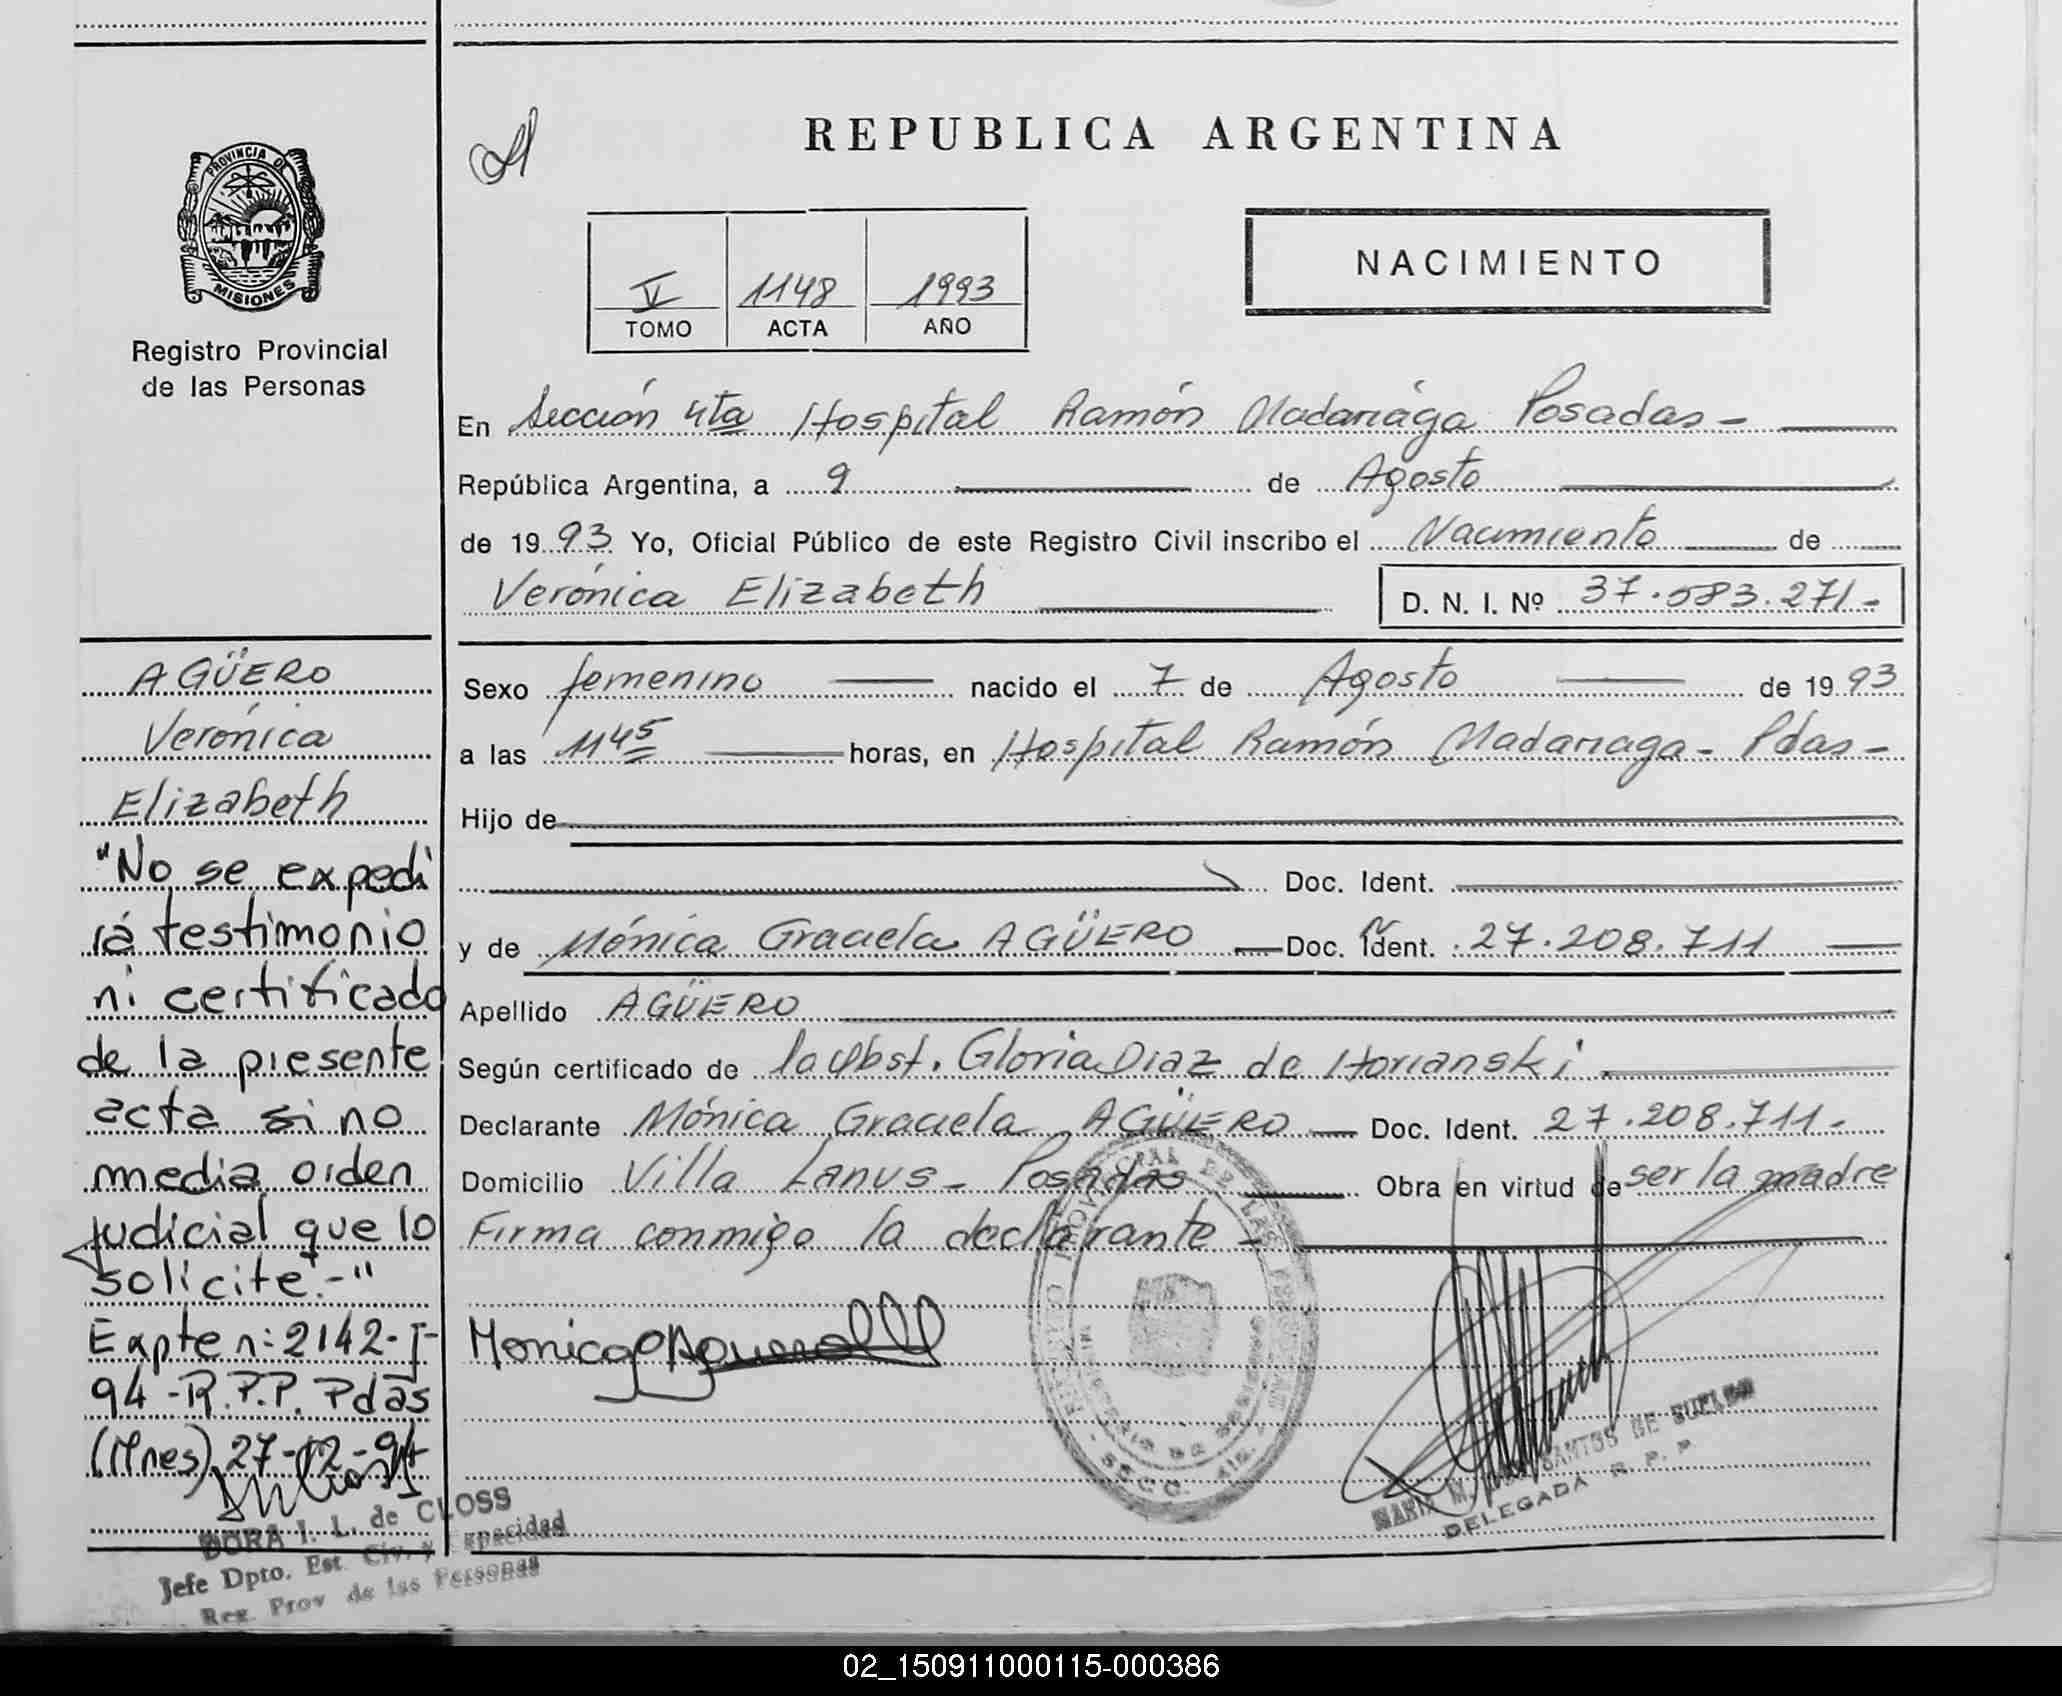 PROVINCIA DE
MISIONES
Registro Provincial
de las Personas
AGÜERO
Verónica
Elizabeth
"No se expedi
rá testimonio
ni certificado
de la presente
acta si no
media orden
judicial que lo
solicite.-"
Expte n: 2142-I-
94-R.P.P. Pdas
(Mnes) 27-12-94
DORA I. L. de CLOSS
Jefe Dpto. Est. Civ. y Capacidad
Reg. Prov de las Personas
REPUBLICA ARGENTINA
V 1148 1993
TOMO ACTA AÑO
NACIMIENTO
En Sección 4ta Hospital Ramón Madariaga Posadas-
República Argentina, a 9 de Agosto
de 1993 Yo, Oficial Público de este Registro Civil inscribo el Nacimiento de
Verónica Elizabeth D. N. I. Nº 37.583.271-
Sexo femenino nacido el 7 de Agosto de 1993
a las 1145 horas, en Hospital Ramón Madariaga- Pdas-
Hijo de
Doc. Ident.
y de Mónica Graciela AGÜERO Doc. Ident. 27.208.711
Apellido AGÜERO
Según certificado de la Obst. Gloria Diaz de Horianski
Declarante Mónica Graciela AGÜERO Doc. Ident. 27.208.711-
Domicilio Villa Lanus- Posadas Obra en virtud de ser la madre
Firma conmigo la declarante-
Monica G Aguero
DELEGADA R. P. P.
02_150911000115-000386